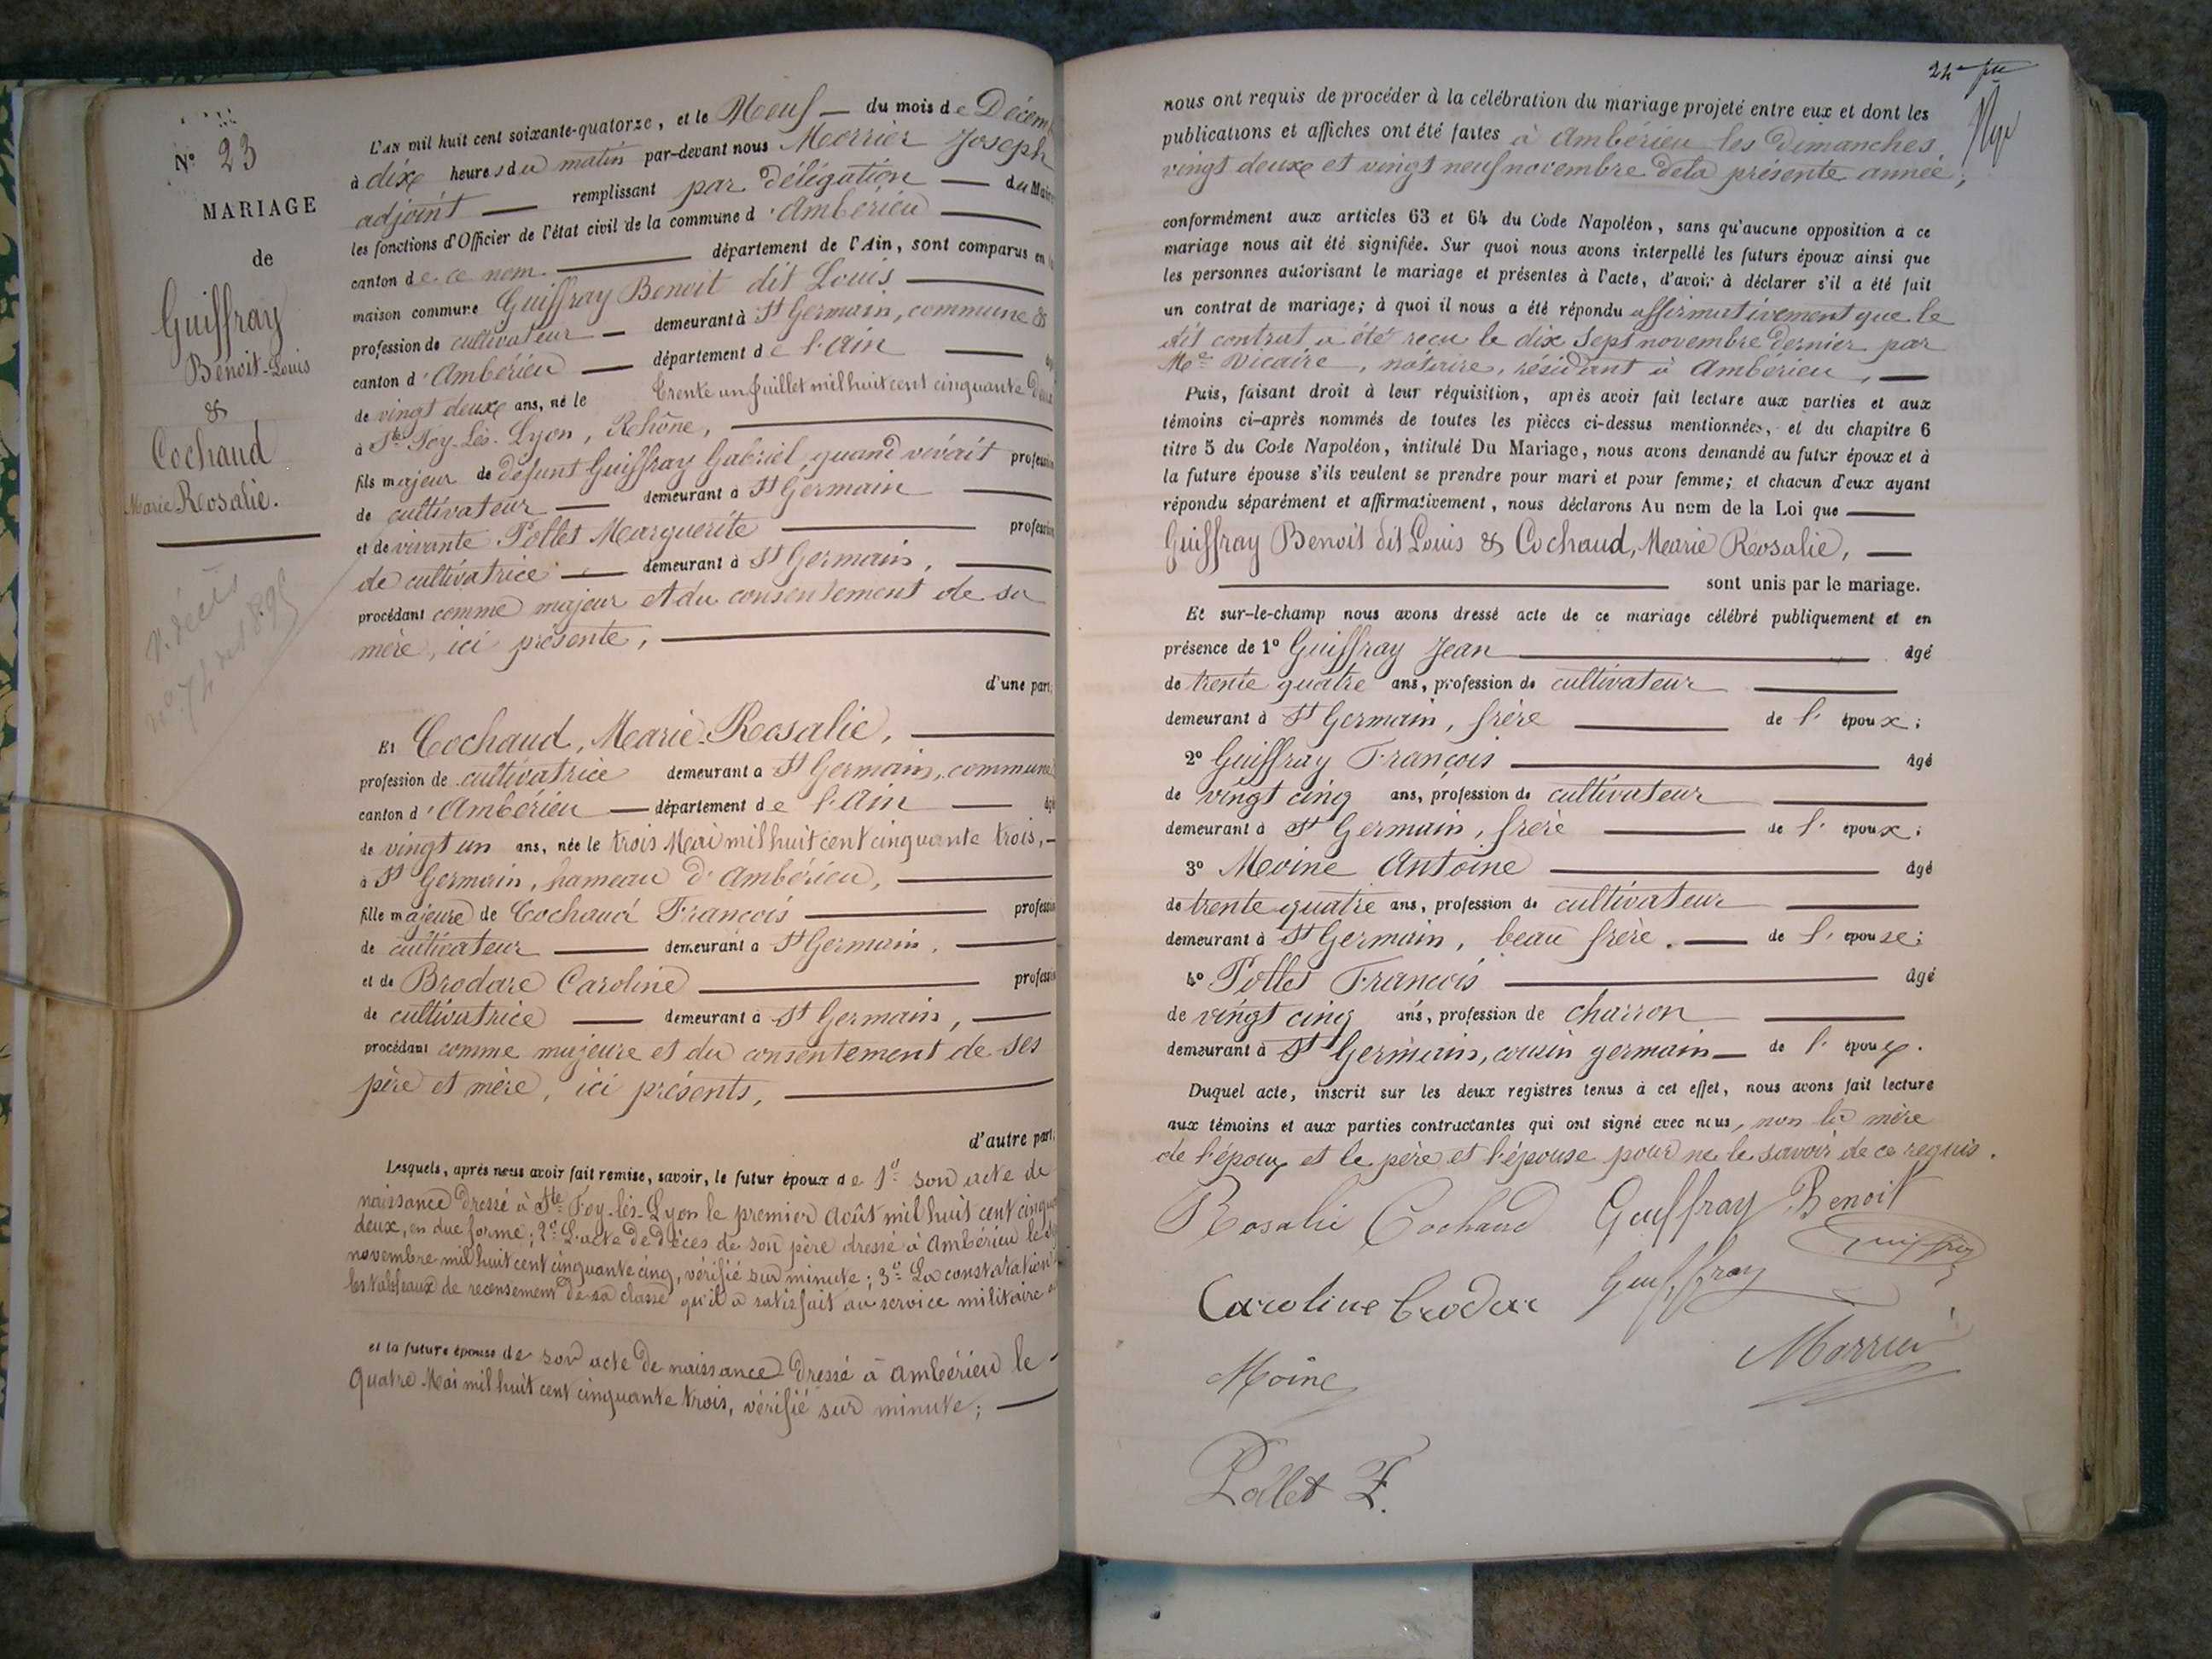 N° 23
MARIAGE
de
Guiffray
Benoit-Louis
&
Cochaud
Marie Rosalie.
V. décès
n° 74 de 1895
L'an mil huit cent soixante-quatorze, et le Neuf — du mois de Décem
à dix heures du matin par-devant nous Merrier Joseph
adjoint — remplissant par délégation — du Maire
les fonctions d'Officier de l'état civil de la commune d'Ambérieu —
canton de ce nom. — département de l'Ain, sont comparus en
maison commune Guiffray Benoit dit Louis —
profession de cultivateur — demeurant à St Germain, commune &
canton d'Ambérieu — département de l'Ain —
de vingt deux ans, né le trente un Juillet mil huit cent cinquante deux
à Ste Foy-Lès-Lyon, Rhône, —
fils majeur de défunt Guiffray Gabriel, quand vivait profession
de cultivateur — demeurant à St Germain —
et de vivante Pollet Marguerite — profession
de cultivatrice — demeurant à St Germain, —
procédant comme majeur et du consentement de sa
mère, ici présente, —
d'une part;
Et Cochaud, Marie-Rosalie, —
profession de cultivatrice demeurant à St Germain, commune
canton d'Ambérieu — département de l'Ain — âgé
de vingt un ans, née le trois Mai mil huit cent cinquante trois, —
à St Germain, hameau d'Ambérieu, —
fille majeure de Cochaud François — profession
de cultivateur — demeurant à St Germain, —
et de Brodare Caroline — profession
de cultivatrice — demeurant à St Germain, —
procédant comme majeure et du consentement de ses
père et mère, ici présents, —
d'autre part;
Lesquels, après nous avoir fait remise, savoir, le futur époux de 1° son acte de
naissance dressé à Ste Foy-lès-Lyon le premier Août mil huit cent cinqua
deux, en due forme; 2° L'acte de décès de son père dressé à Ambérieu le
novembre mil huit cent cinquante cinq, vérifié sur minute; 3° La constatation
les tableaux de recensement de sa classe qu'il a satisfait au service militaire
et la future épouse de son acte de naissance dressé à Ambérieu le
quatre Mai mil huit cent cinquante trois, vérifié sur minute; —
nous ont requis de procéder à la célébration du mariage projeté entre eux et dont les
publications et affiches ont été faites à Ambérieu les dimanches
vingt deux et vingt neuf novembre de la présente année;
conformément aux articles 63 et 64 du Code Napoléon, sans qu'aucune opposition à ce
mariage nous ait été signifiée. Sur quoi nous avons interpellé les futurs époux ainsi que
les personnes autorisant le mariage et présentes à l'acte, d'avoir à déclarer s'il a été fait
un contrat de mariage; à quoi il nous a été répondu affirmativement que le
dit contrat a été reçu le dix Sept novembre dernier par
Me Vicaire, notaire, résidant à Ambérieu, —
Puis, faisant droit à leur réquisition, après avoir fait lecture aux parties et aux
témoins ci-après nommés de toutes les pièces ci-dessus mentionnées, et du chapitre 6
titre 5 du Code Napoléon, intitulé Du Mariage, nous avons demandé au futur époux et à
la future épouse s'ils veulent se prendre pour mari et pour femme; et chacun d'eux ayant
répondu séparément et affirmativement, nous déclarons Au nom de la Loi que —
Guiffray Benoit dit Louis & Cochaud, Marie Rosalie, —
— sont unis par le mariage.
Et sur-le-champ nous avons dressé acte de ce mariage célébré publiquement et en
présence de 1° Guiffray Jean — âgé
de trente quatre ans, profession de cultivateur —
demeurant à St Germain, frère — de l'époux;
2° Guiffray François — âgé
de vingt cinq ans, profession de cultivateur —
demeurant à St Germain, frère — de l'époux;
3° Moine Antoine — âgé
de trente quatre ans, profession de cultivateur —
demeurant à St Germain, beau frère. — de l'épouse;
4° Pollet François — âgé
de vingt cinq ans, profession de charron —
demeurant à St Germain, cousin germain — de l'époux.
Duquel acte, inscrit sur les deux registres tenus à cet effet, nous avons fait lecture
aux témoins et aux parties contractantes qui ont signé avec nous, non la mère
de l'époux et le père et l'épouse pour ne le savoir de ce requis.
Rosalie Cochaud Guiffray Benoit
Guiffray
Caroline brodare Guiffray
Moine Merrier
Pollet F.